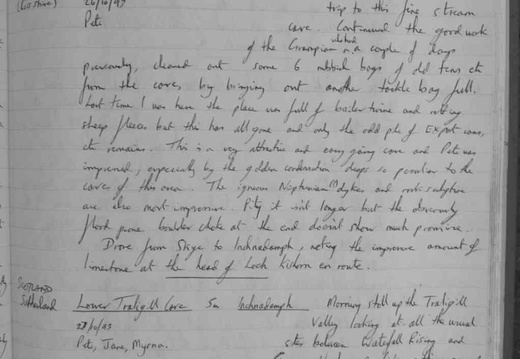 26/10/93 trip to this fine stream
Pete cave. Continued the good work
of the Grampian a couple of days
previously, cleaned out some 6 rubbish bags of old tins etc
from the cave, by bringing out another tackle bag full.
Last time I was here the place was full of boiler twine and rotting
sheep fleeces but this has all gone and only the odd pile of Export cans,
etc remains. This is a very attractive and easy going cave and Pete was
impressed, especially by the golden condensation drops so peculiar to the
caves of this area. The igneous Neptunian dykes and rock sculpture
are also most impressive. Pity it isn't longer but the obviously
flood prone boulder choke at the end doesn't show much promise.
Drove from Skye to Inchnadamph, noting the impressive amount of
limestone at the head of Loch Kishorn en route.
SCOTLAND
Sutherland Lower Traligill Cave Inchnadamph Morning stroll up the Traligill
27/10/93 Valley looking at all the usual
Pete, Jane, Myrna. sites between Waterfall Rising and